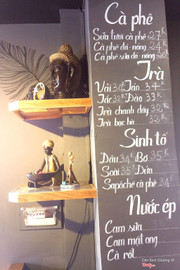 Cà phê
Sữa tươi cà phê 27K
Cà phê đá-nóng 24K
Cà phê sữa đá-nóng
Trà
Vải 34K Tắc 34K
Táo 32K Đào 33K
Trà chanh dây 32K
Trà bạc hà
Sinh tố
Dâu 34K Bơ 35K
Xoài 35K Dừa
Sapôchê cà phê 34K
Nước ép
Cam sữa
Cam mật ong
Cà rốt